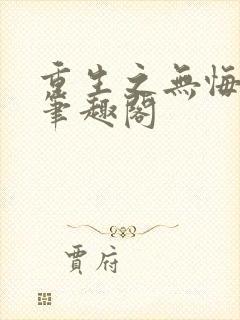 重生之無悔
筆趣閣
賈府